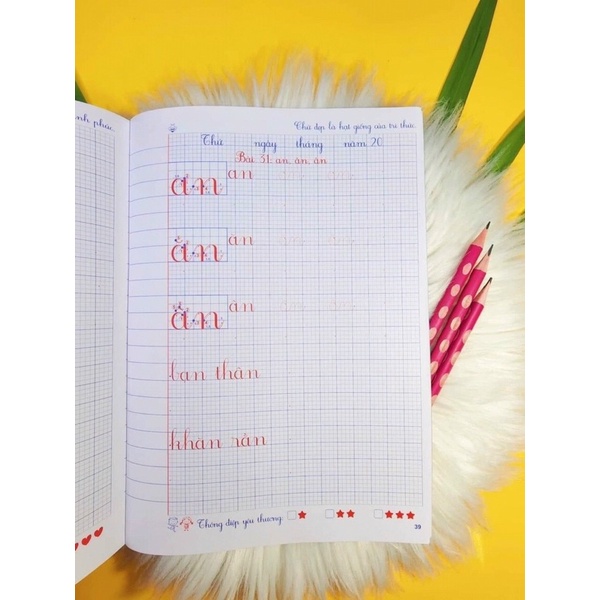 nh phúc
Chữ đẹp là hạt giống của tri thức
Thứ ngày tháng năm 20
Bài 51: an, ăn, ân
an an
ăn ăn
ân ân
bạn thân
khăn rằn
Thông điệp yêu thương
39